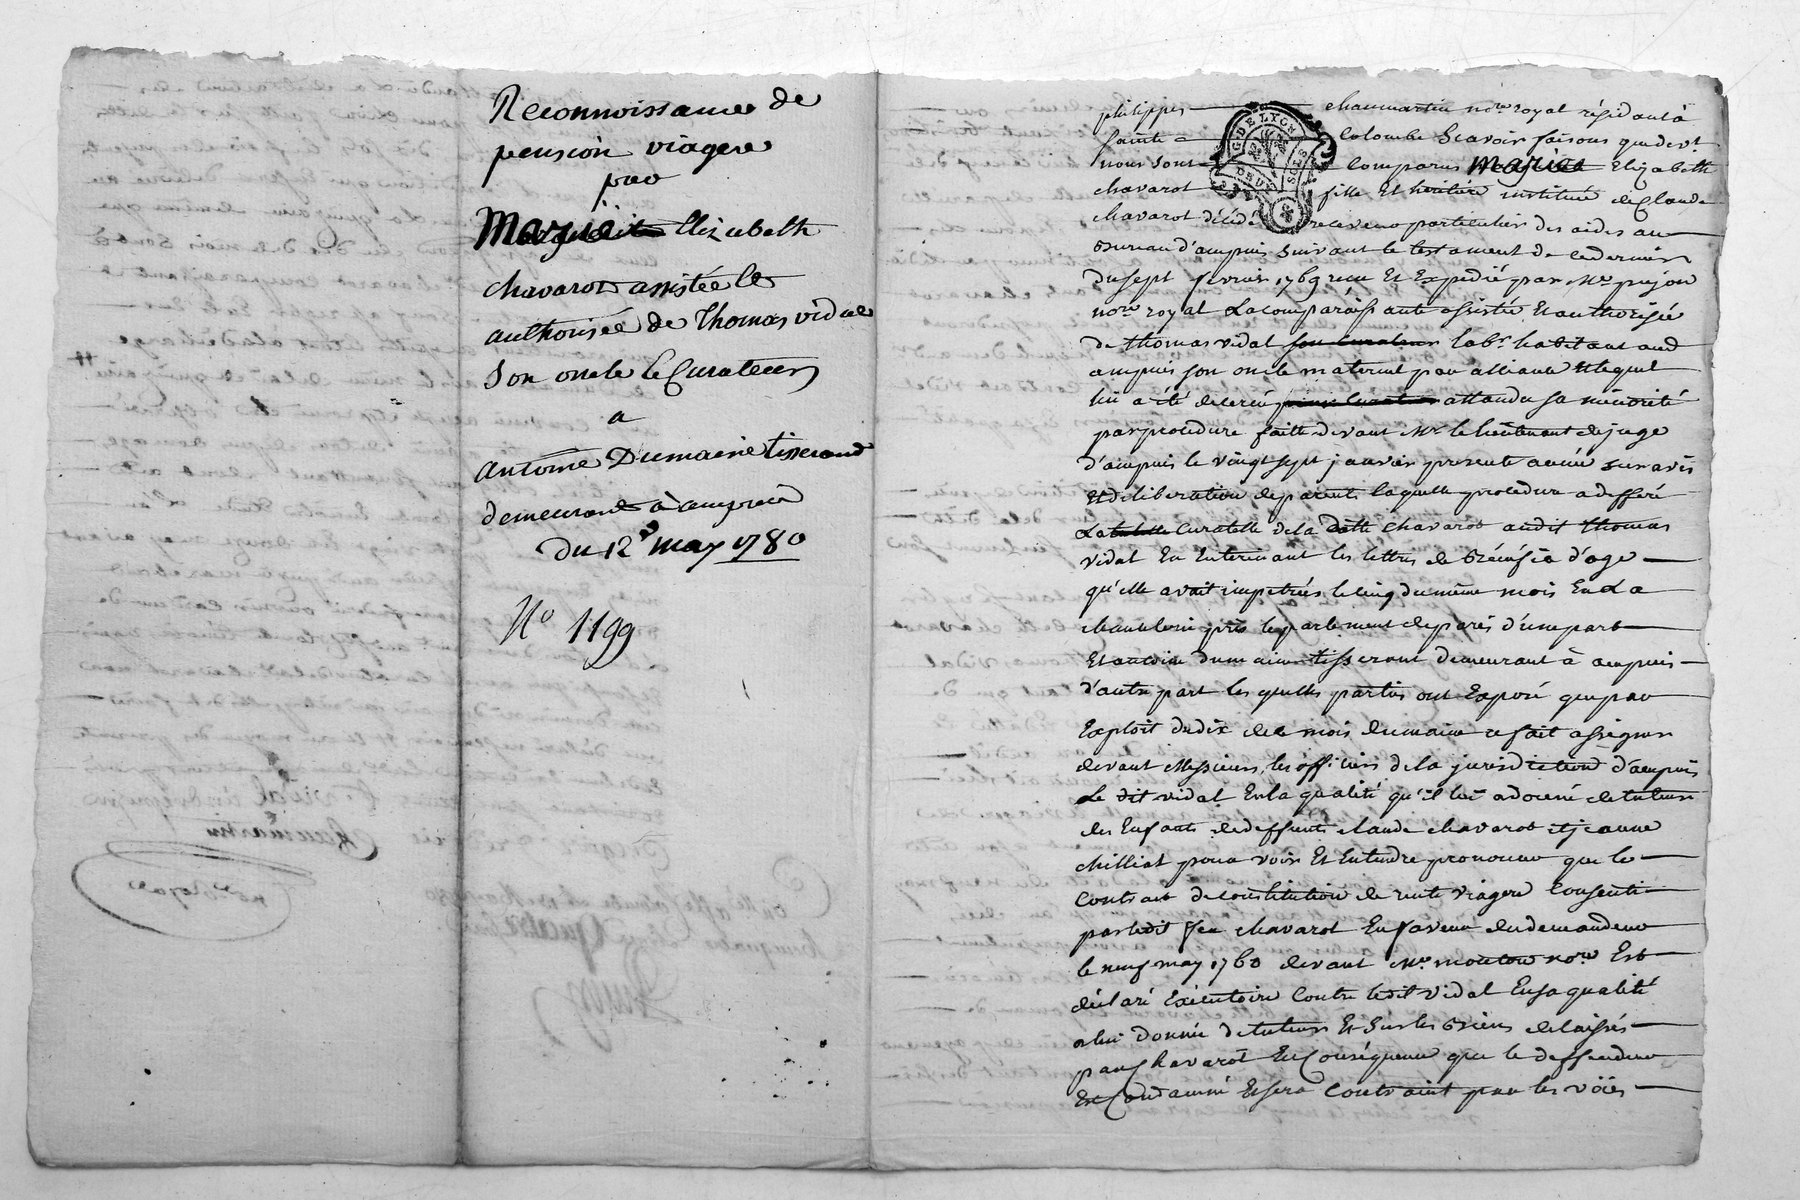 Reconnoissance de
pension viagere
par
Marie Elizabeth
chavarot assistée et
authorisée de Thomas vidal
son oncle et Curateur
a
antoine Dumaine tisserand
demeurant à ampuis
Du 12e may 1780
No 1199
philippes chaumartin nore royal résidant à
sainte colombe scavoir faisons que devt
nous sont comparus marie Elizabeth
chavarot fille Et héritière instituée de Claude
chavarot décédé receveur particulier des aides au
bureau d'ampuis suivant le testament de ce dernier
du sept fevrier 1769 recu Et Expedié par Me
nore royal La comparaissante assistée Et authorisée
de thomas vidal son curateur labr habitant aud
ampuis son oncle maternel par alliance lequel
lui a été decerné pour curateur attandu sa minorité
par procedure faitte devant Mr le lieutenant de juge
d'ampuis le vingt sept janvier presente année sur avis
Et deliberation de parents laquelle procedure a defferé
La tutelle curatelle de la dette chavarot audit thomas
vidal En Enterinant les lettres de Bénéfice d'age
qu'elle avait impetrées le cinq du même mois En La
chancelerie près le parlement de paris d'une part
Et antoine dumaine tisserant demeurant à ampuis
d'autre part les quelles parties ont Exposé que par
Exploit du dix de ce mois dumaine a fait assigner
devant Messieurs les officiers de la jurisdiction d'ampuis
Le dit vidal En la qualité qu'il lui a donné de tuteur
des Enfants de deffunts claude chavarot et jeanne
chilliat pour voir Et Entendre prononcer que le
contrat de constitution de rente viagere consenti
par ledit feu chavarot En faveur du demandeur
le neuf may 1760 devant Me mouton nore Est
déclaré Exécutoire contre ledit vidal En sa qualité
a lui donnée de tuteur Et sur les Biens delaissés
par Chavarot En Conséquence que le deffendeur
Est Condamné Et sera contraint par les voies
G. DE LYON
DEUX SOLS